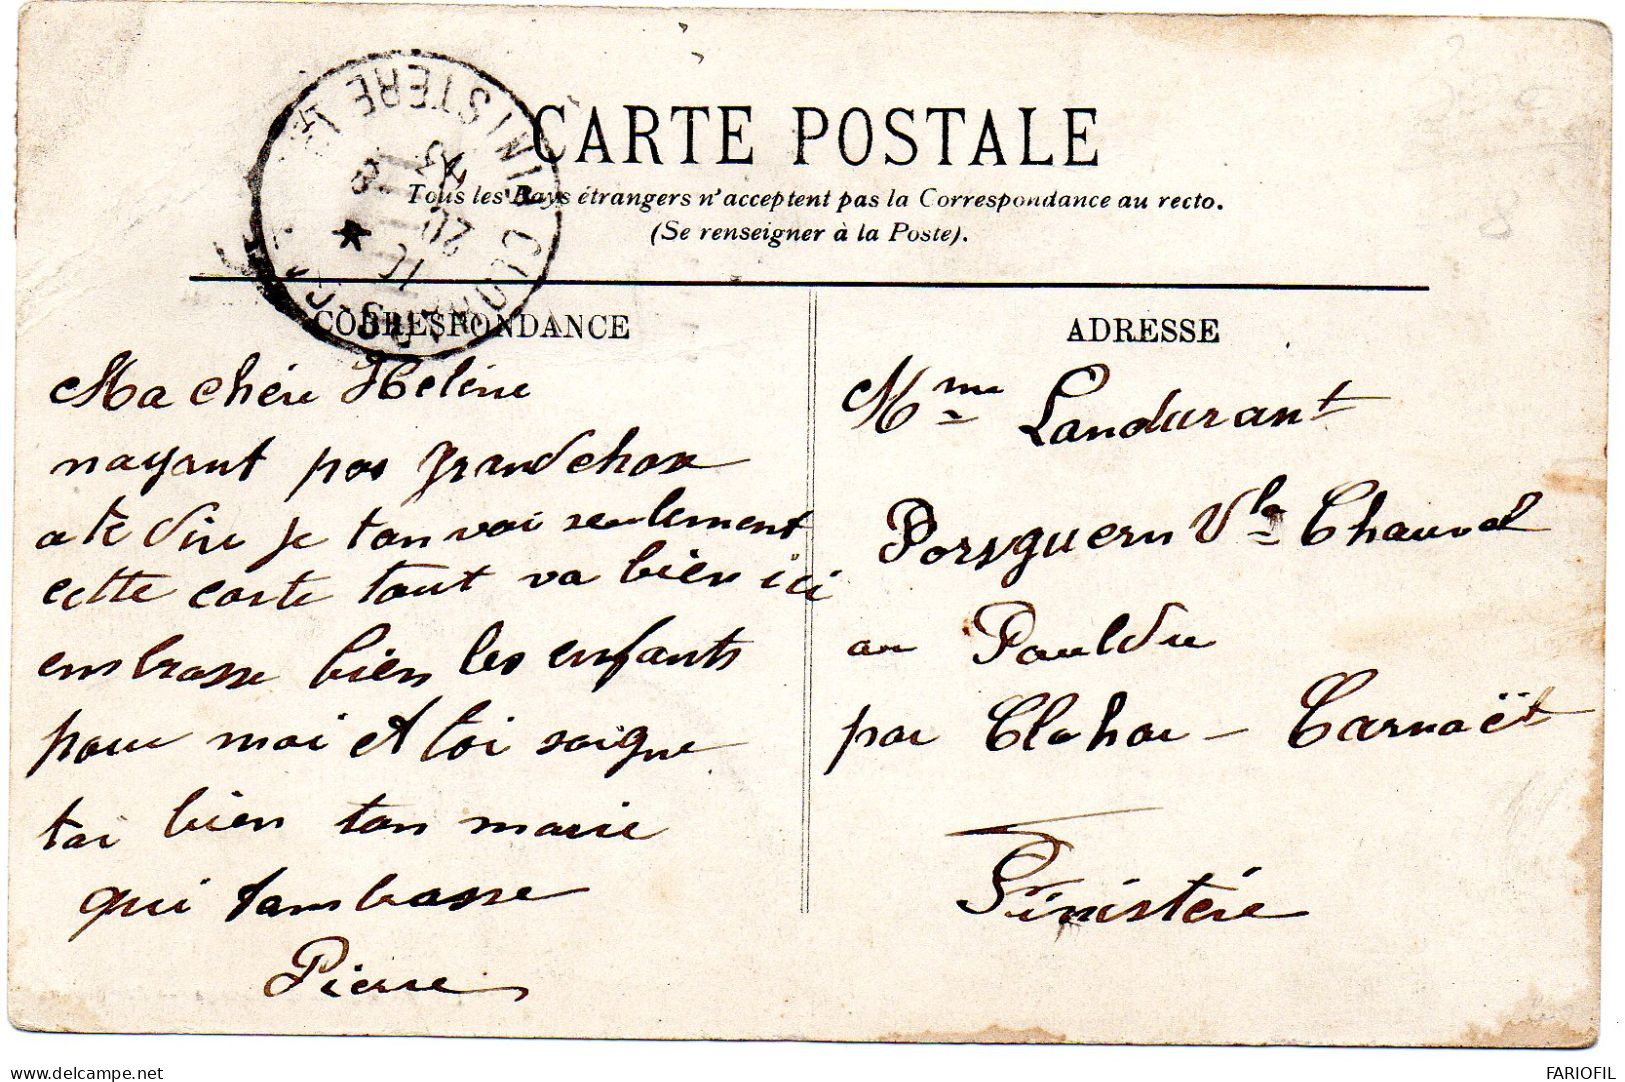 CARTE POSTALE
Tous les Pays étrangers n'acceptent pas la Correspondance au recto.
(Se renseigner à la Poste).
CORRESPONDANCE
Ma chére Heléne
nayant pas grand chose
a te dire je tan voi seulement
cette carte tout va bien ici
embrasse bien les enfants
pour moi et toi soigne
toi bien ton marie
qui tambrasse
Pierre
ADRESSE
Mme Landurant
Porsguern Vla Chauvel
au Pouldu
par Clohar - Carnoët
Finistére
FINISTERE
20
delcampe.net
FARIOFIL